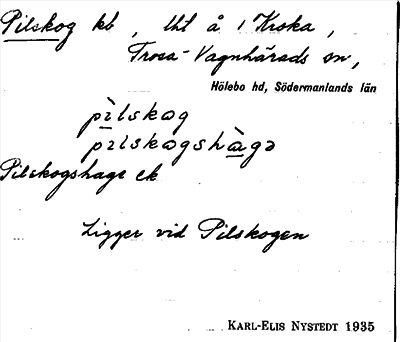 Pilskog kb, tht å 1 Krska,
Trosa-Vagnhärads sn,
Hölebo hd, Södermanlands län
pìlskog
pìlskogshàgə
Pilskogshage ek
Ligger vid Pilskogen
KARL-ELIS NYSTEDT 1935